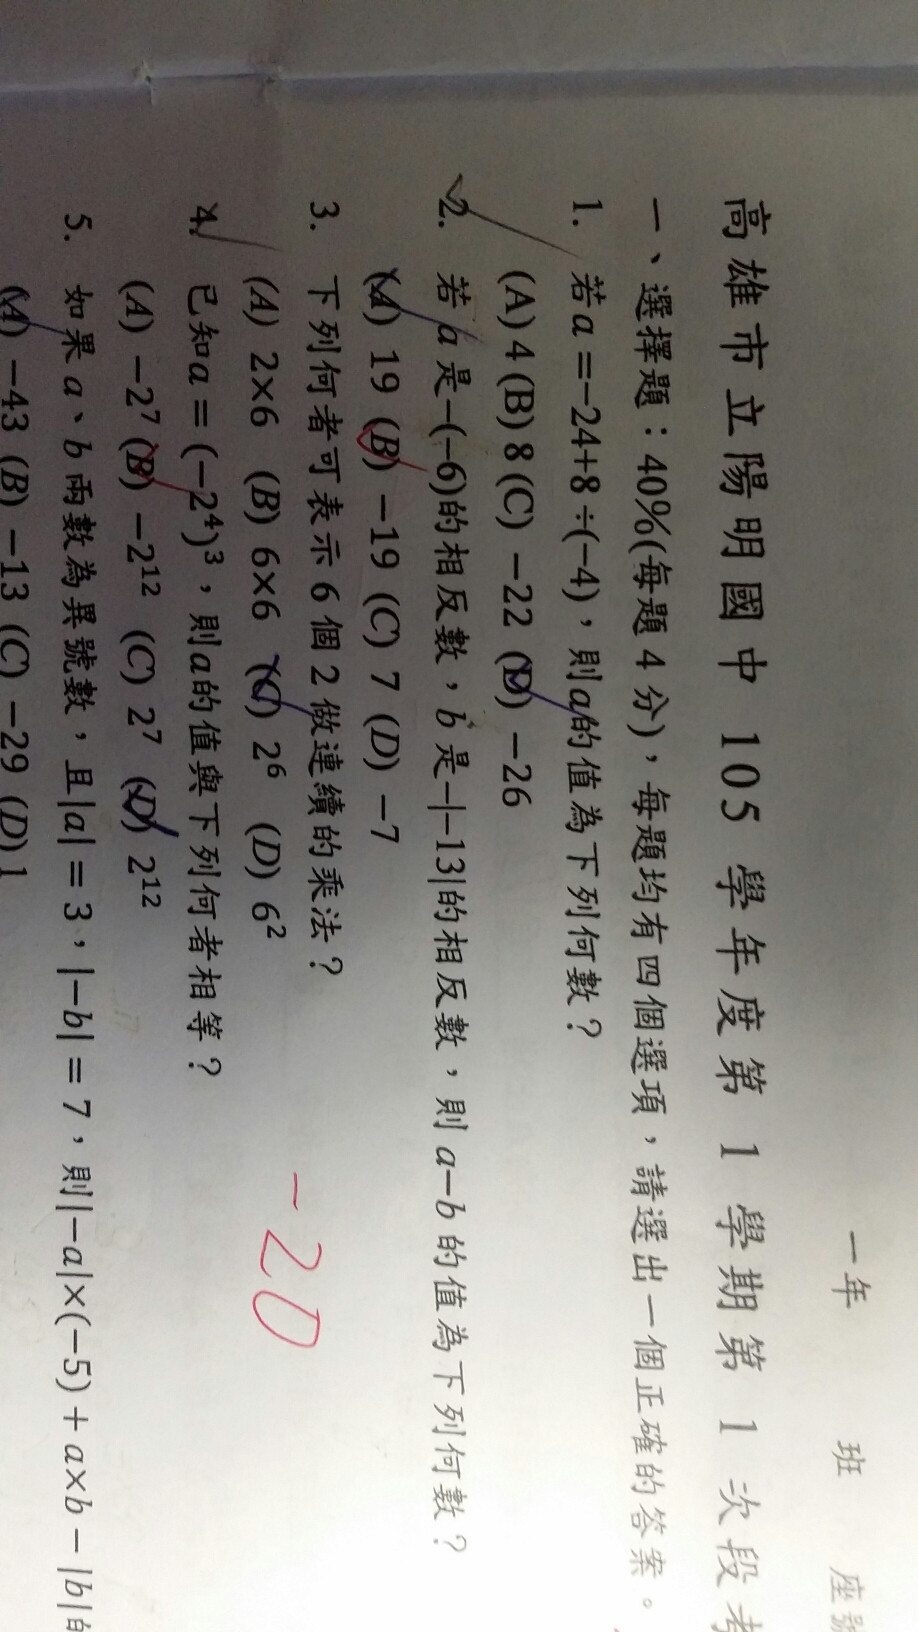 一年 班 座號
高雄市立陽明國中 105 學年度第 1 學期第 1 次段考
一、選擇題：40%(每題 4 分)，每題均有四個選項，請選出一個正確的答案。
1. 若a =−24+8 ÷(−4)，則a的值為下列何數？
(A) 4 (B) 8 (C) −22 (D) −26
2. 若 a 是−(−6)的相反數，b 是−|−13|的相反數，則 a−b 的值為下列何數？
(A) 19 (B) −19 (C) 7 (D) −7
3. 下列何者可表示 6 個 2 做連續的乘法？
(A) 2×6 (B) 6×6 (C) 2⁶ (D) 6²
4. 已知a = (−2⁴)³，則a的值與下列何者相等？
(A) −2⁷ (B) −2¹² (C) 2⁷ (D) 2¹²
−20
5. 如果 a、b 兩數為異號數，且|a| = 3，|−b| = 7，則|−a|×(−5) + a×b − |b|的
(A) −43 (B) −13 (C) −29 (D) 1